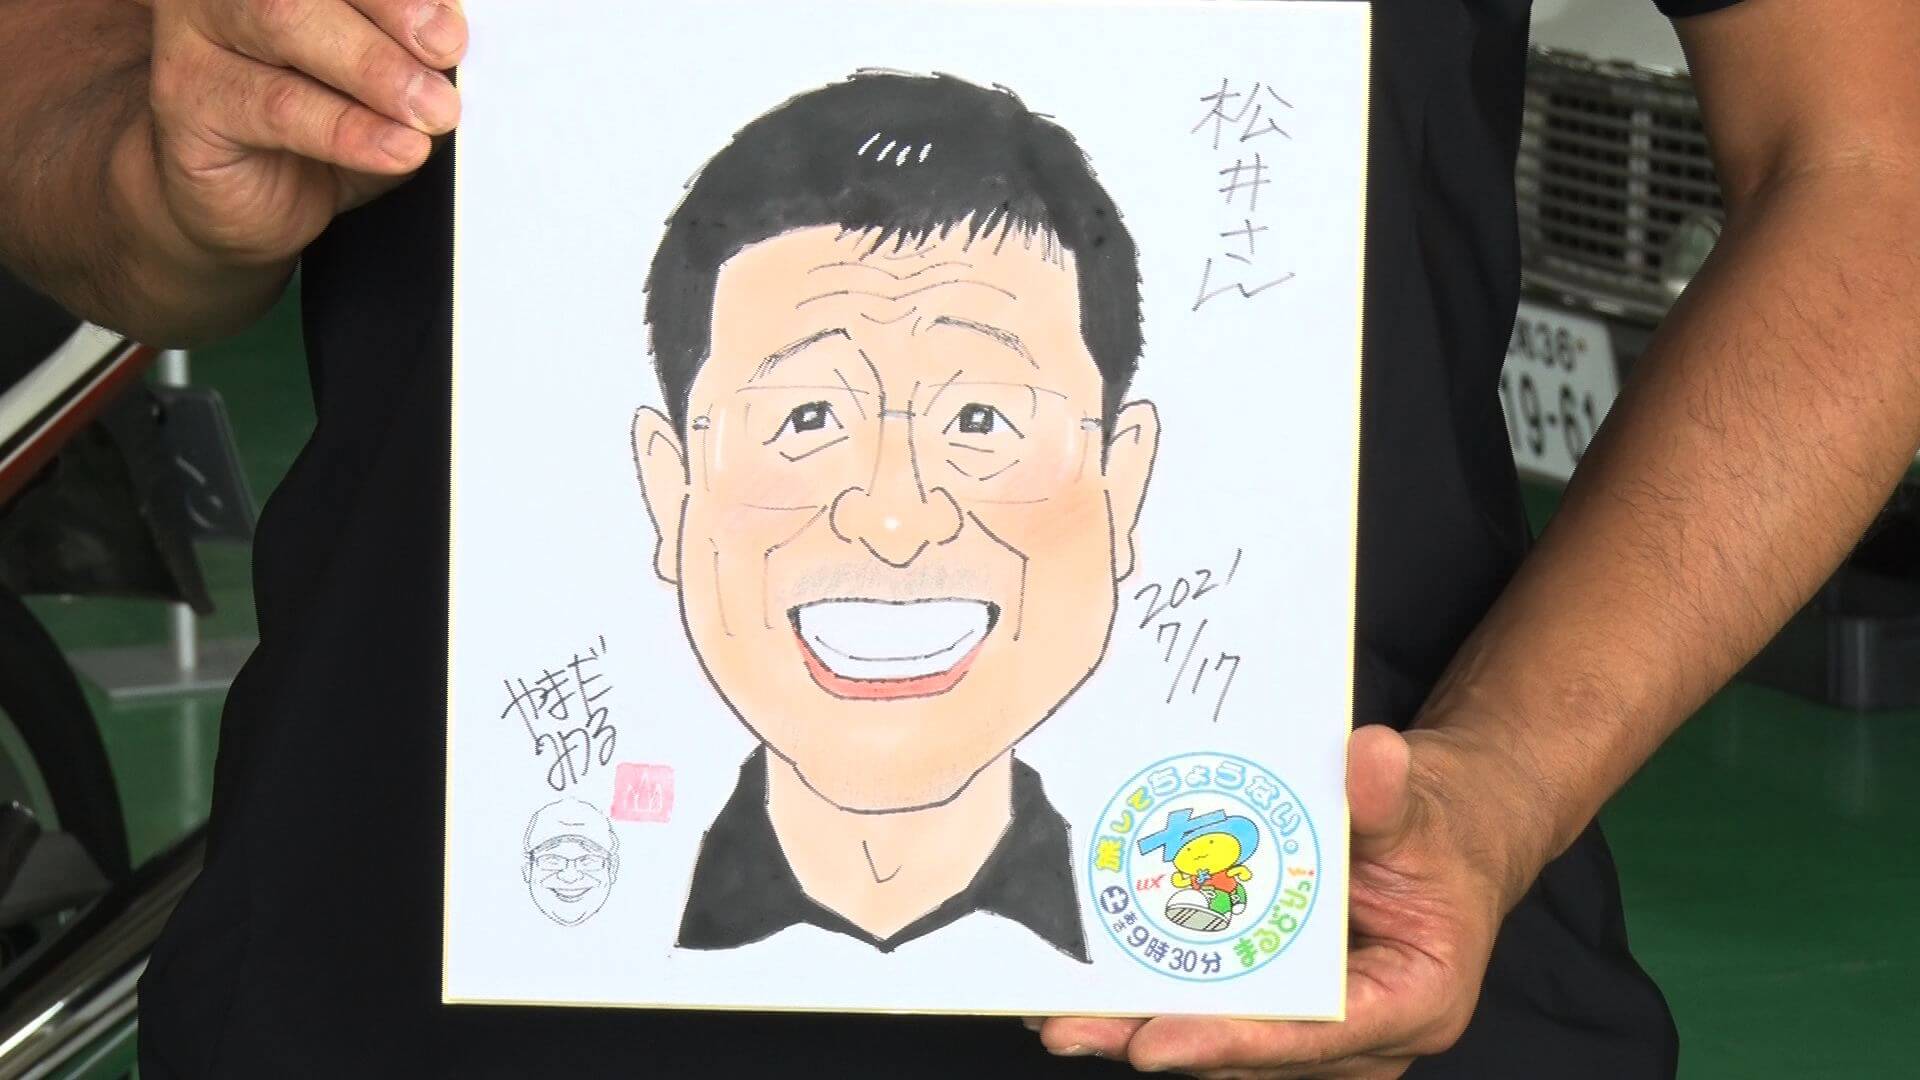 松井さん
2021
7/17
やまだ
みつる
旅してちょうない。
まるどりっ!
UX
土 あさ 9時30分
636
19-61